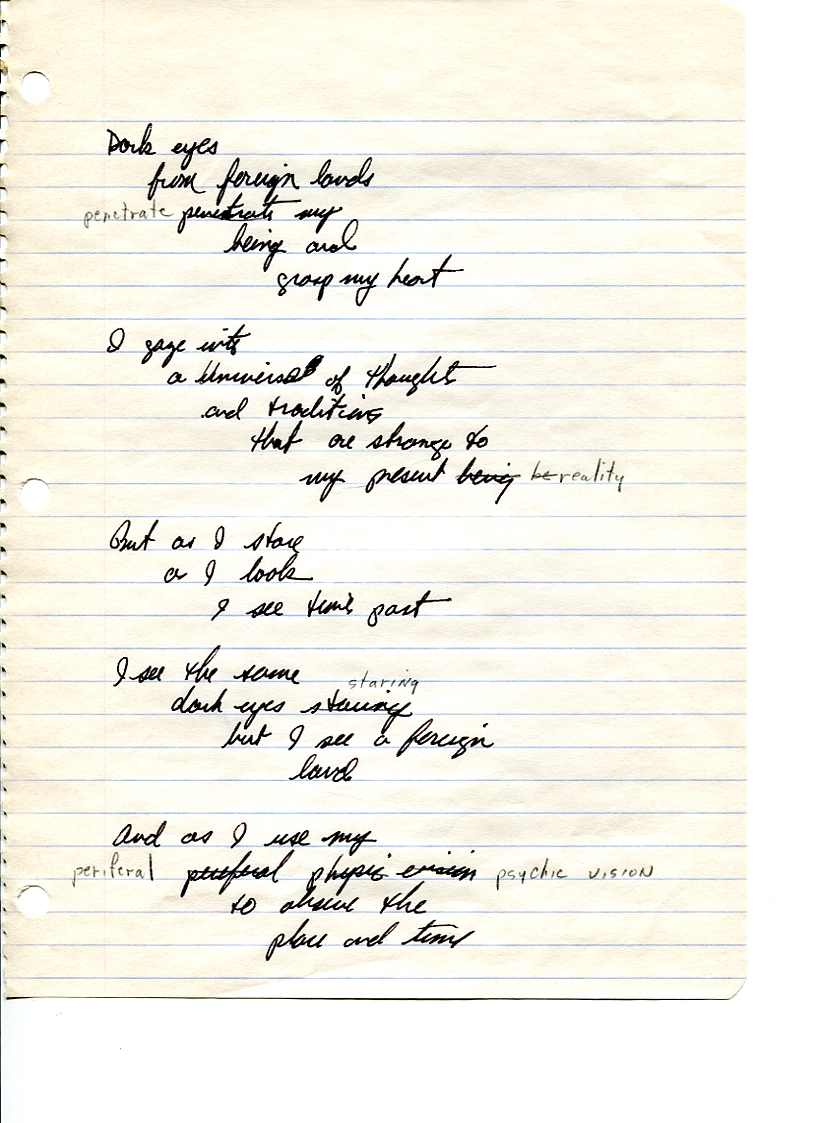 Dark eyes
from foreign lands
penetrate penetrate my
being and
grasp my heart
I gaze into
a Universe of thought
and traditions
that are strange to
my present being be reality
But as I stare
as I look
I see times past
I see the same
staring
dark eyes staring
but I see a foreign
land
And as I use my
periferal periferal physic vision psychic vision
to observe the
place and time